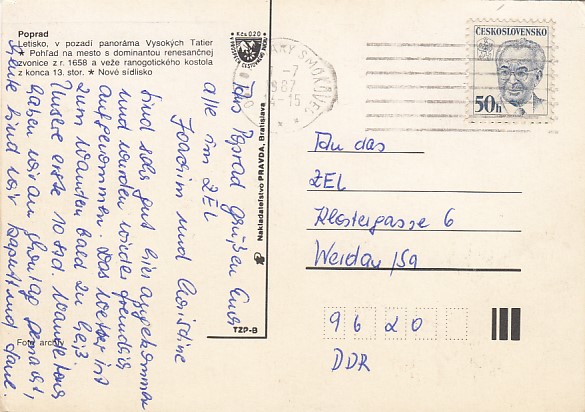 Poprad
Letisko, v pozadí panoráma Vysokých Tatier
★ Pohľad na mesto s dominantou renesančnej
zvonice z r. 1658 a veže ranogotického kostola
z konca 13. stor. ★ Nové sídlisko
Foto: archív
Kčs 0,20
Nakladateľstvo PRAVDA, Bratislava
TZP-B
SMOKOVEC
-7
1987
-15
ČESKOSLOVENSKO
50h
An das
ZEL
Klostergasse 6
Werdau / Sa
9620
DDR
Aus Poprad grüßen Euch
alle im ZEL
Joachim und Christine
Sind sehr gut hier angekommen
und wurden wieder freundlich
aufgenommen. Das Wetter ist
zum Wandern bald zu heiß.
Unsere erste 10 Std. Wandertour
haben wir am Montag gemacht,
heute sind wir kaputt und